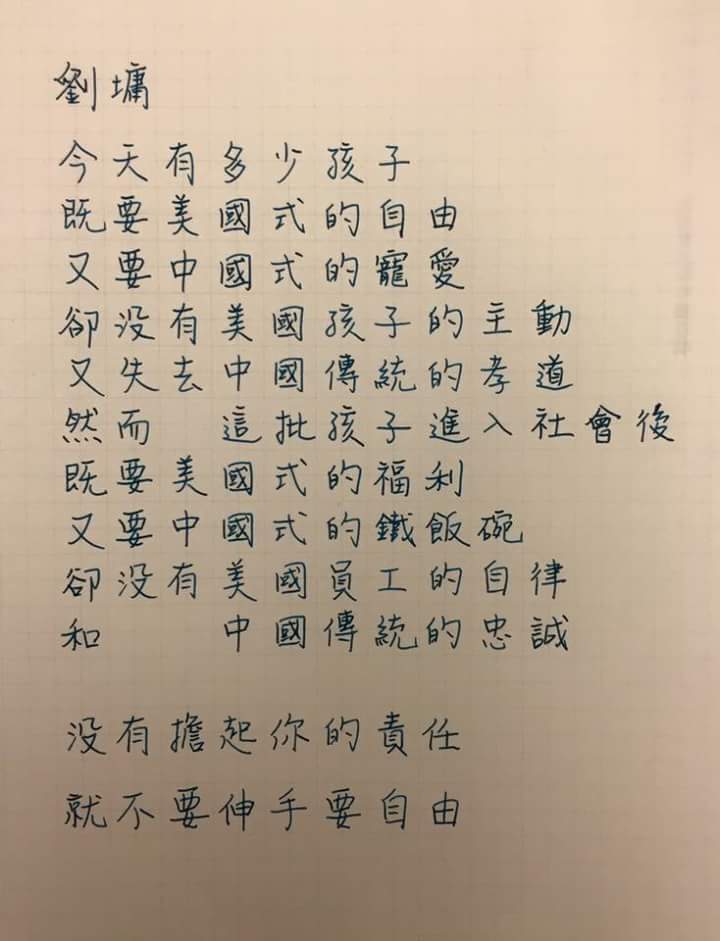 劉墉
今天有多少孩子
既要美國式的自由
又要中國式的寵愛
卻没有美國孩子的主動
又失去中國傳統的孝道
然而　這批孩子進入社會後
既要美國式的福利
又要中國式的鐵飯碗
卻没有美國員工的自律
和　　中國傳統的忠誠
没有擔起你的責任
就不要伸手要自由